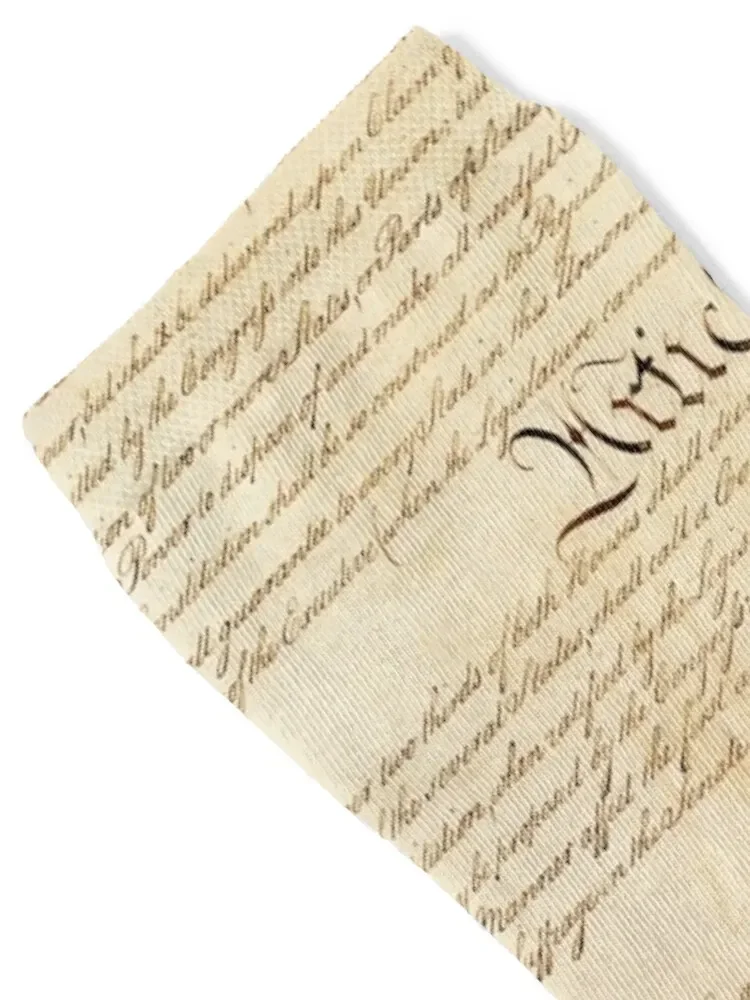 our, but shall be delivered up on Claim of
itted by the Congress into this Union; but
ion of two or more States, or Parts of States
Power to dispose of and make all needful
onstitution shall be so construed, as to Prejud
all guarantee to every State in this Union
of the Executive (when the Legislature cannot
Artic
or two thirds of both Houses shall dee
f the several States, shall call a Co
itution, when ratified by the Legis
y be proposed by the Congress
Manner affect the first
Suffrage in the Senate